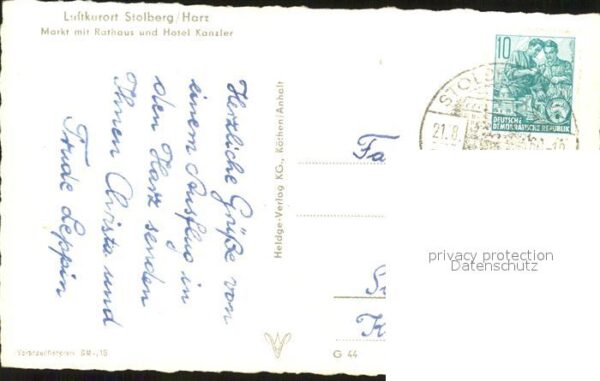 Luftkurort Stolberg/Harz
Markt mit Rathaus und Hotel Kanzler
Herzliche Grüße von
einem Ausflug in
den Harz senden
Ihnen Christa und
Trude Leppin
Heldge-Verlag KG., Köthen/Anhalt
Fa
K
G 44
10
DEUTSCHE
DEMOKRATISCHE REPUBLIK
STOL
21.8.
privacy protection
Datenschutz